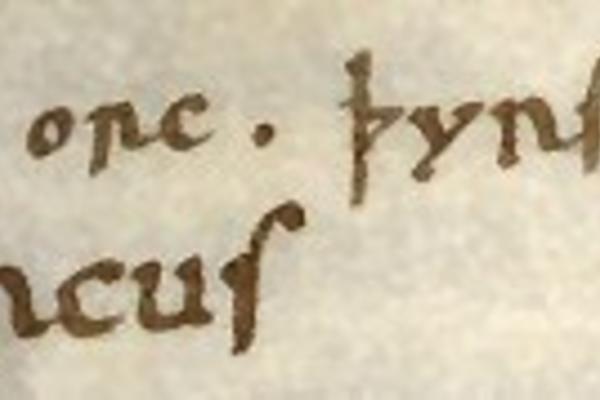 orc . þyrſ
ncuſ